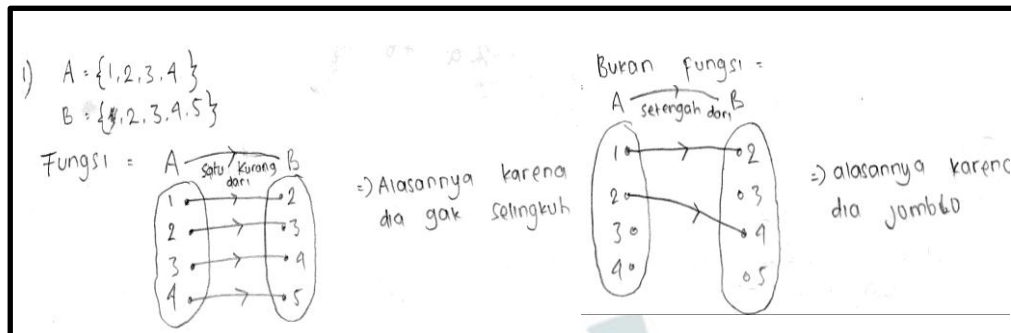 1) A = {1,2,3,4}
B = {2,3,4,5}
Fungsi =
A → B
satu kurang dari
1 2
2 3
3 4
4 5
=) Alasannya karena
dia gak selingkuh
Bukan fungsi =
A → B
setengah dari
1 2
2 3
3 4
4 5
=) alasannya karena
dia jomblo